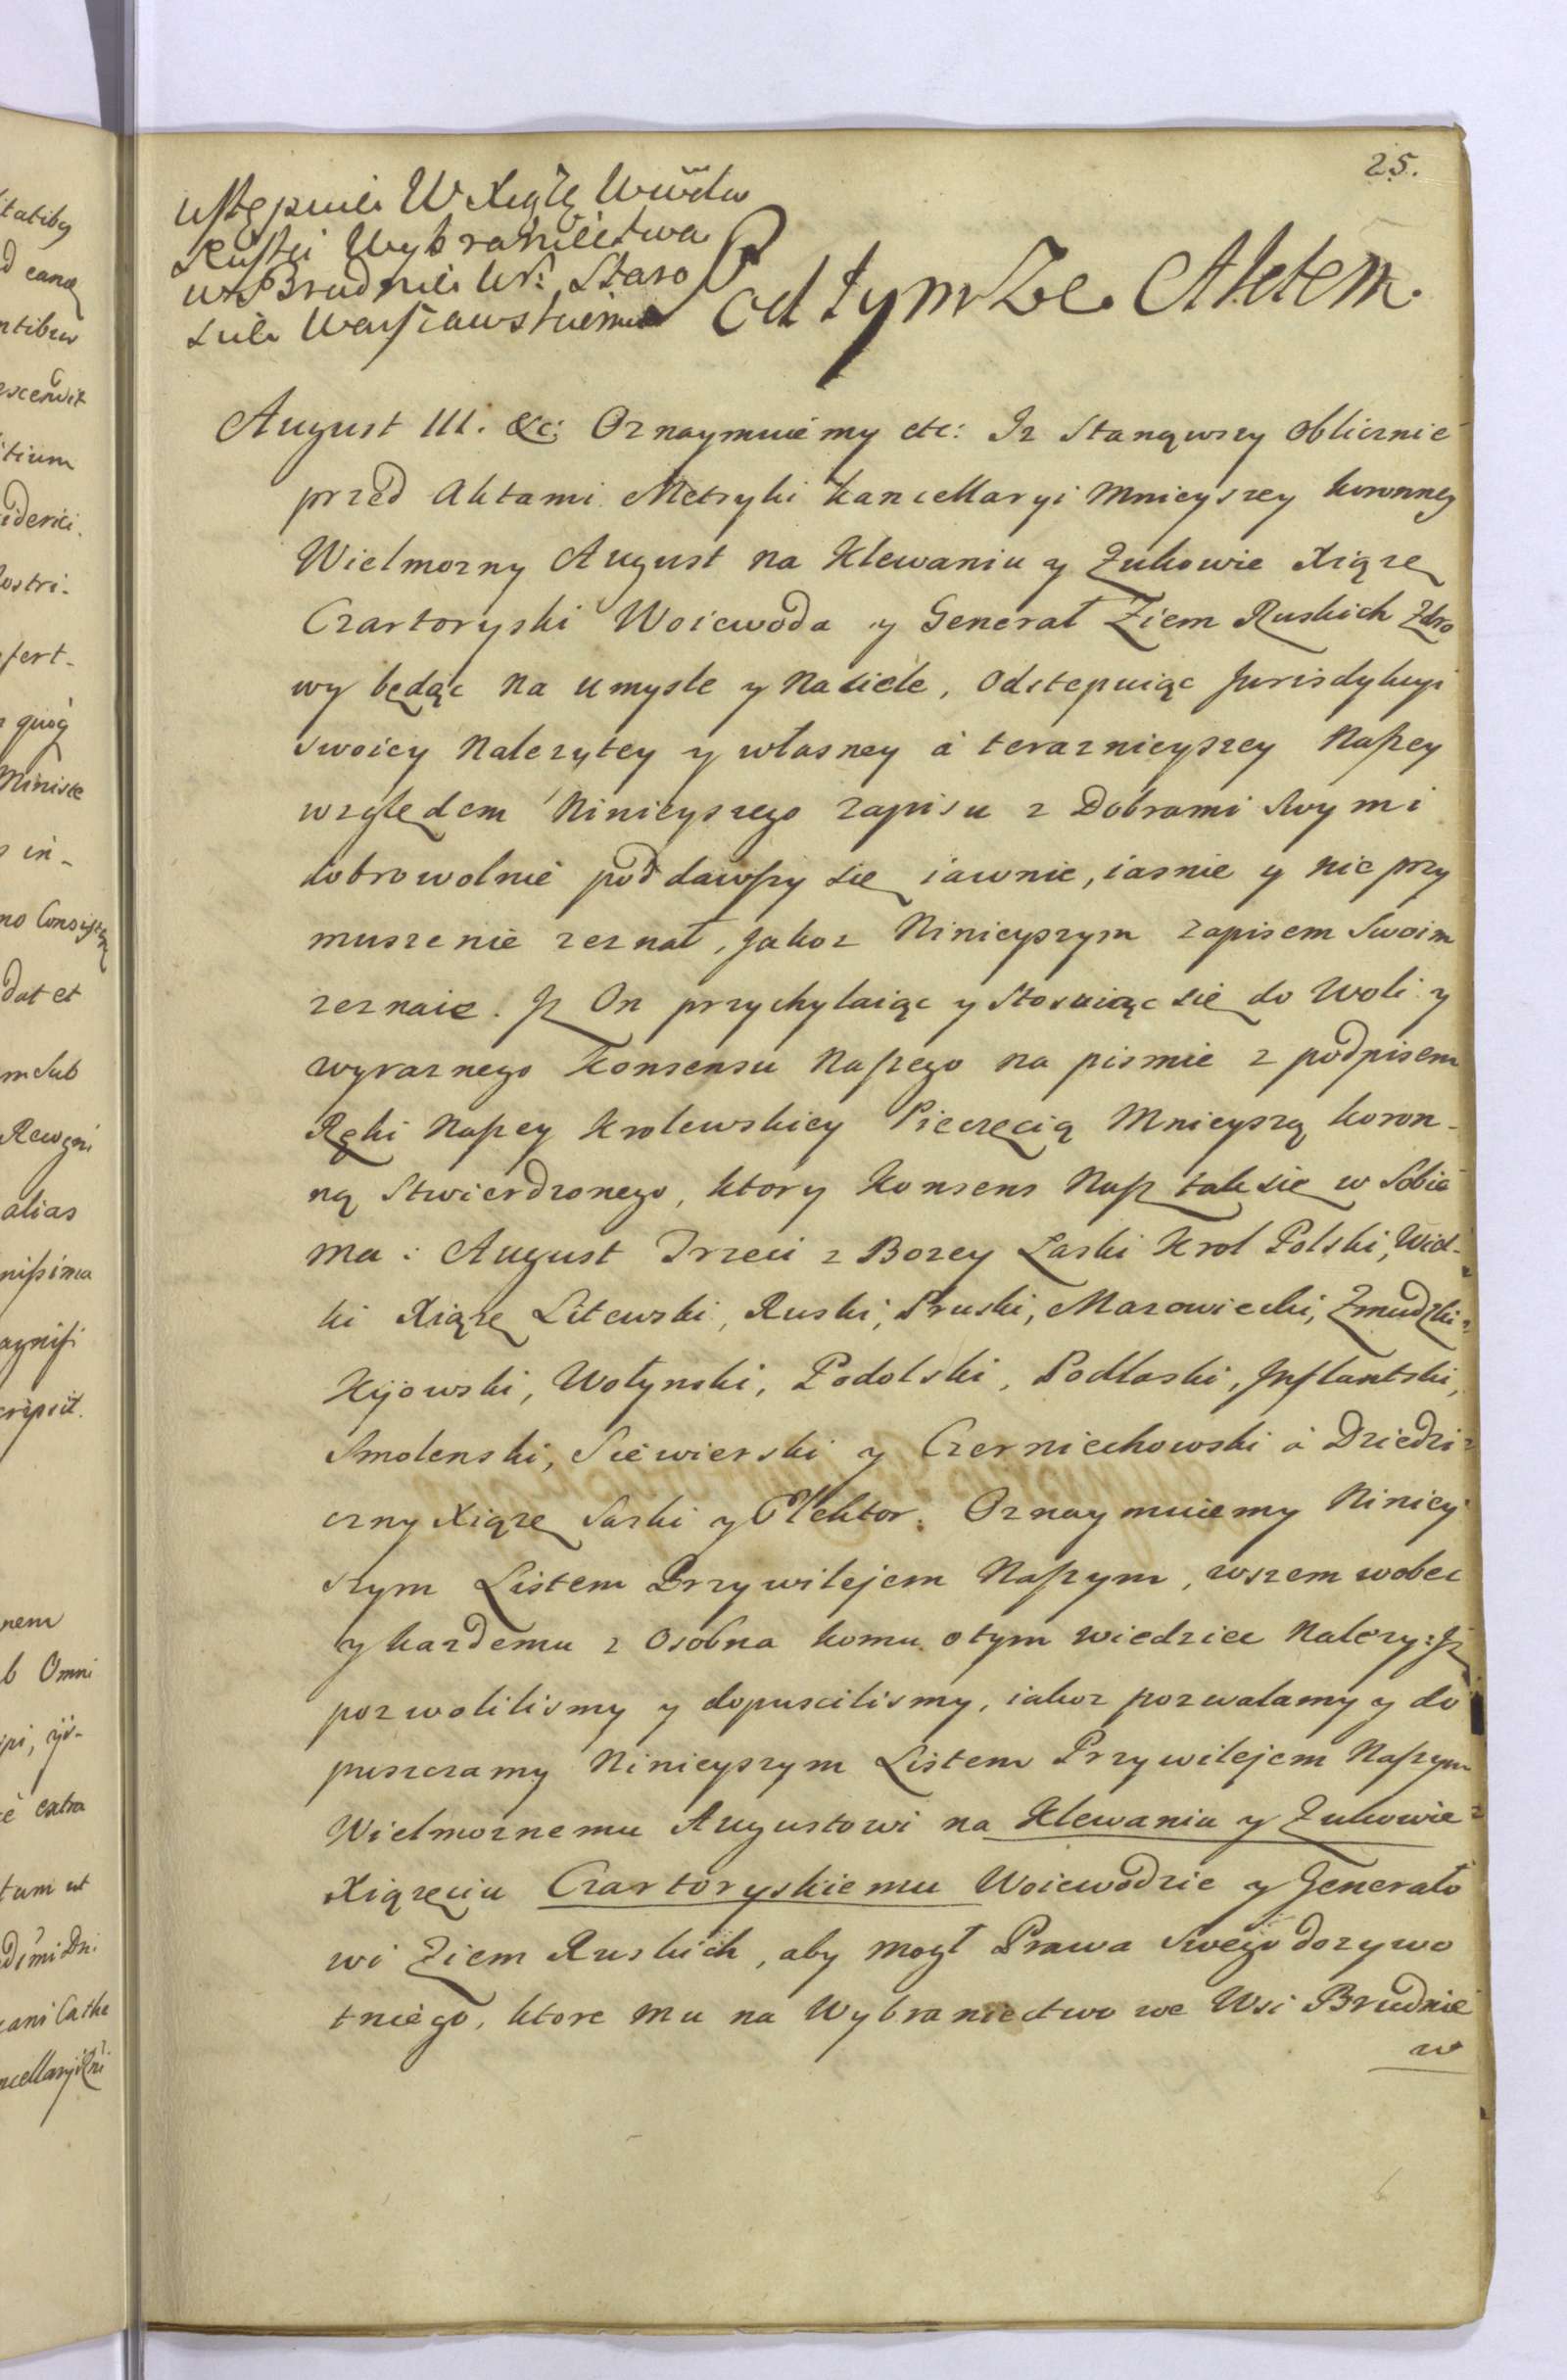 25.
Ustępuie W Xiąże Wwoda
Ruski Wybraniectwa
w Brudnie Ur: Staro
scie Warszawskiemu
Pod tymże Aktem.
August III. &c: Oznaymuiemy etc: Iz Stanąwszy oblicznie
przed Aktami Metryki Kancellaryi Mnieyszey koronney
Wielmozny August na Klewaniu y Zukowie Xiąze
Czartoryski Woiewoda y Generał Ziem Ruskich Zdro
wy będąc na umysle y na ciele, odstępuiąc Jurisdykcyi
swoiey nalezytey y własney á teraznieyszey Naszey
względem Ninieyszego zapisu z Dobrami Swymi
dobrowolnie poddawszy się iawnie, iasnie y nie przy
muszenie zeznał, Jakoz Ninieyszym zapisem Swoim
zeznaie. Jz On przychylaiąc y stosuiąc się do Woli y
wyraznego Konsensu Naszego na pismie z podpisem
Ręki Naszey Krolewskiey Pieczęcią Mnieyszą koron-
ną stwierdzonego, ktory Konsens Nasz tak się w Sobie
ma: August Trzeci z Bozey Łaski Krol Polski, Wiel-
ki Xiąze Litewski, Ruski, Pruski, Mazowiecki, Zmudzki,
Kijowski, Wołynski, Podolski, Podlaski, Jnflantski,
Smolenski, Siewierski y Czerniechowski á Dziedzi
czny Xiąze Saski y Elektor. Oznaymuiemy Niniey
szym Listem Przywilejem Naszym, wszem wobec
y kazdemu z osobna komu o tym wiedziec Nalezy: Jz
pozwolilismy y dopuscilismy, iakoz pozwalamy y do
puszczamy Ninieyszym Listem Przywilejem Naszym
Wielmoznemu Augustowi na Klewaniu y Zukowie
Xiązęciu Czartoryskiemu Woiewodzie y Generało
wi Ziem Ruskich, aby mogł Prawa Swego dozywo
tniego, ktore mu na Wybraniectwo we Wsi Brudnie
w